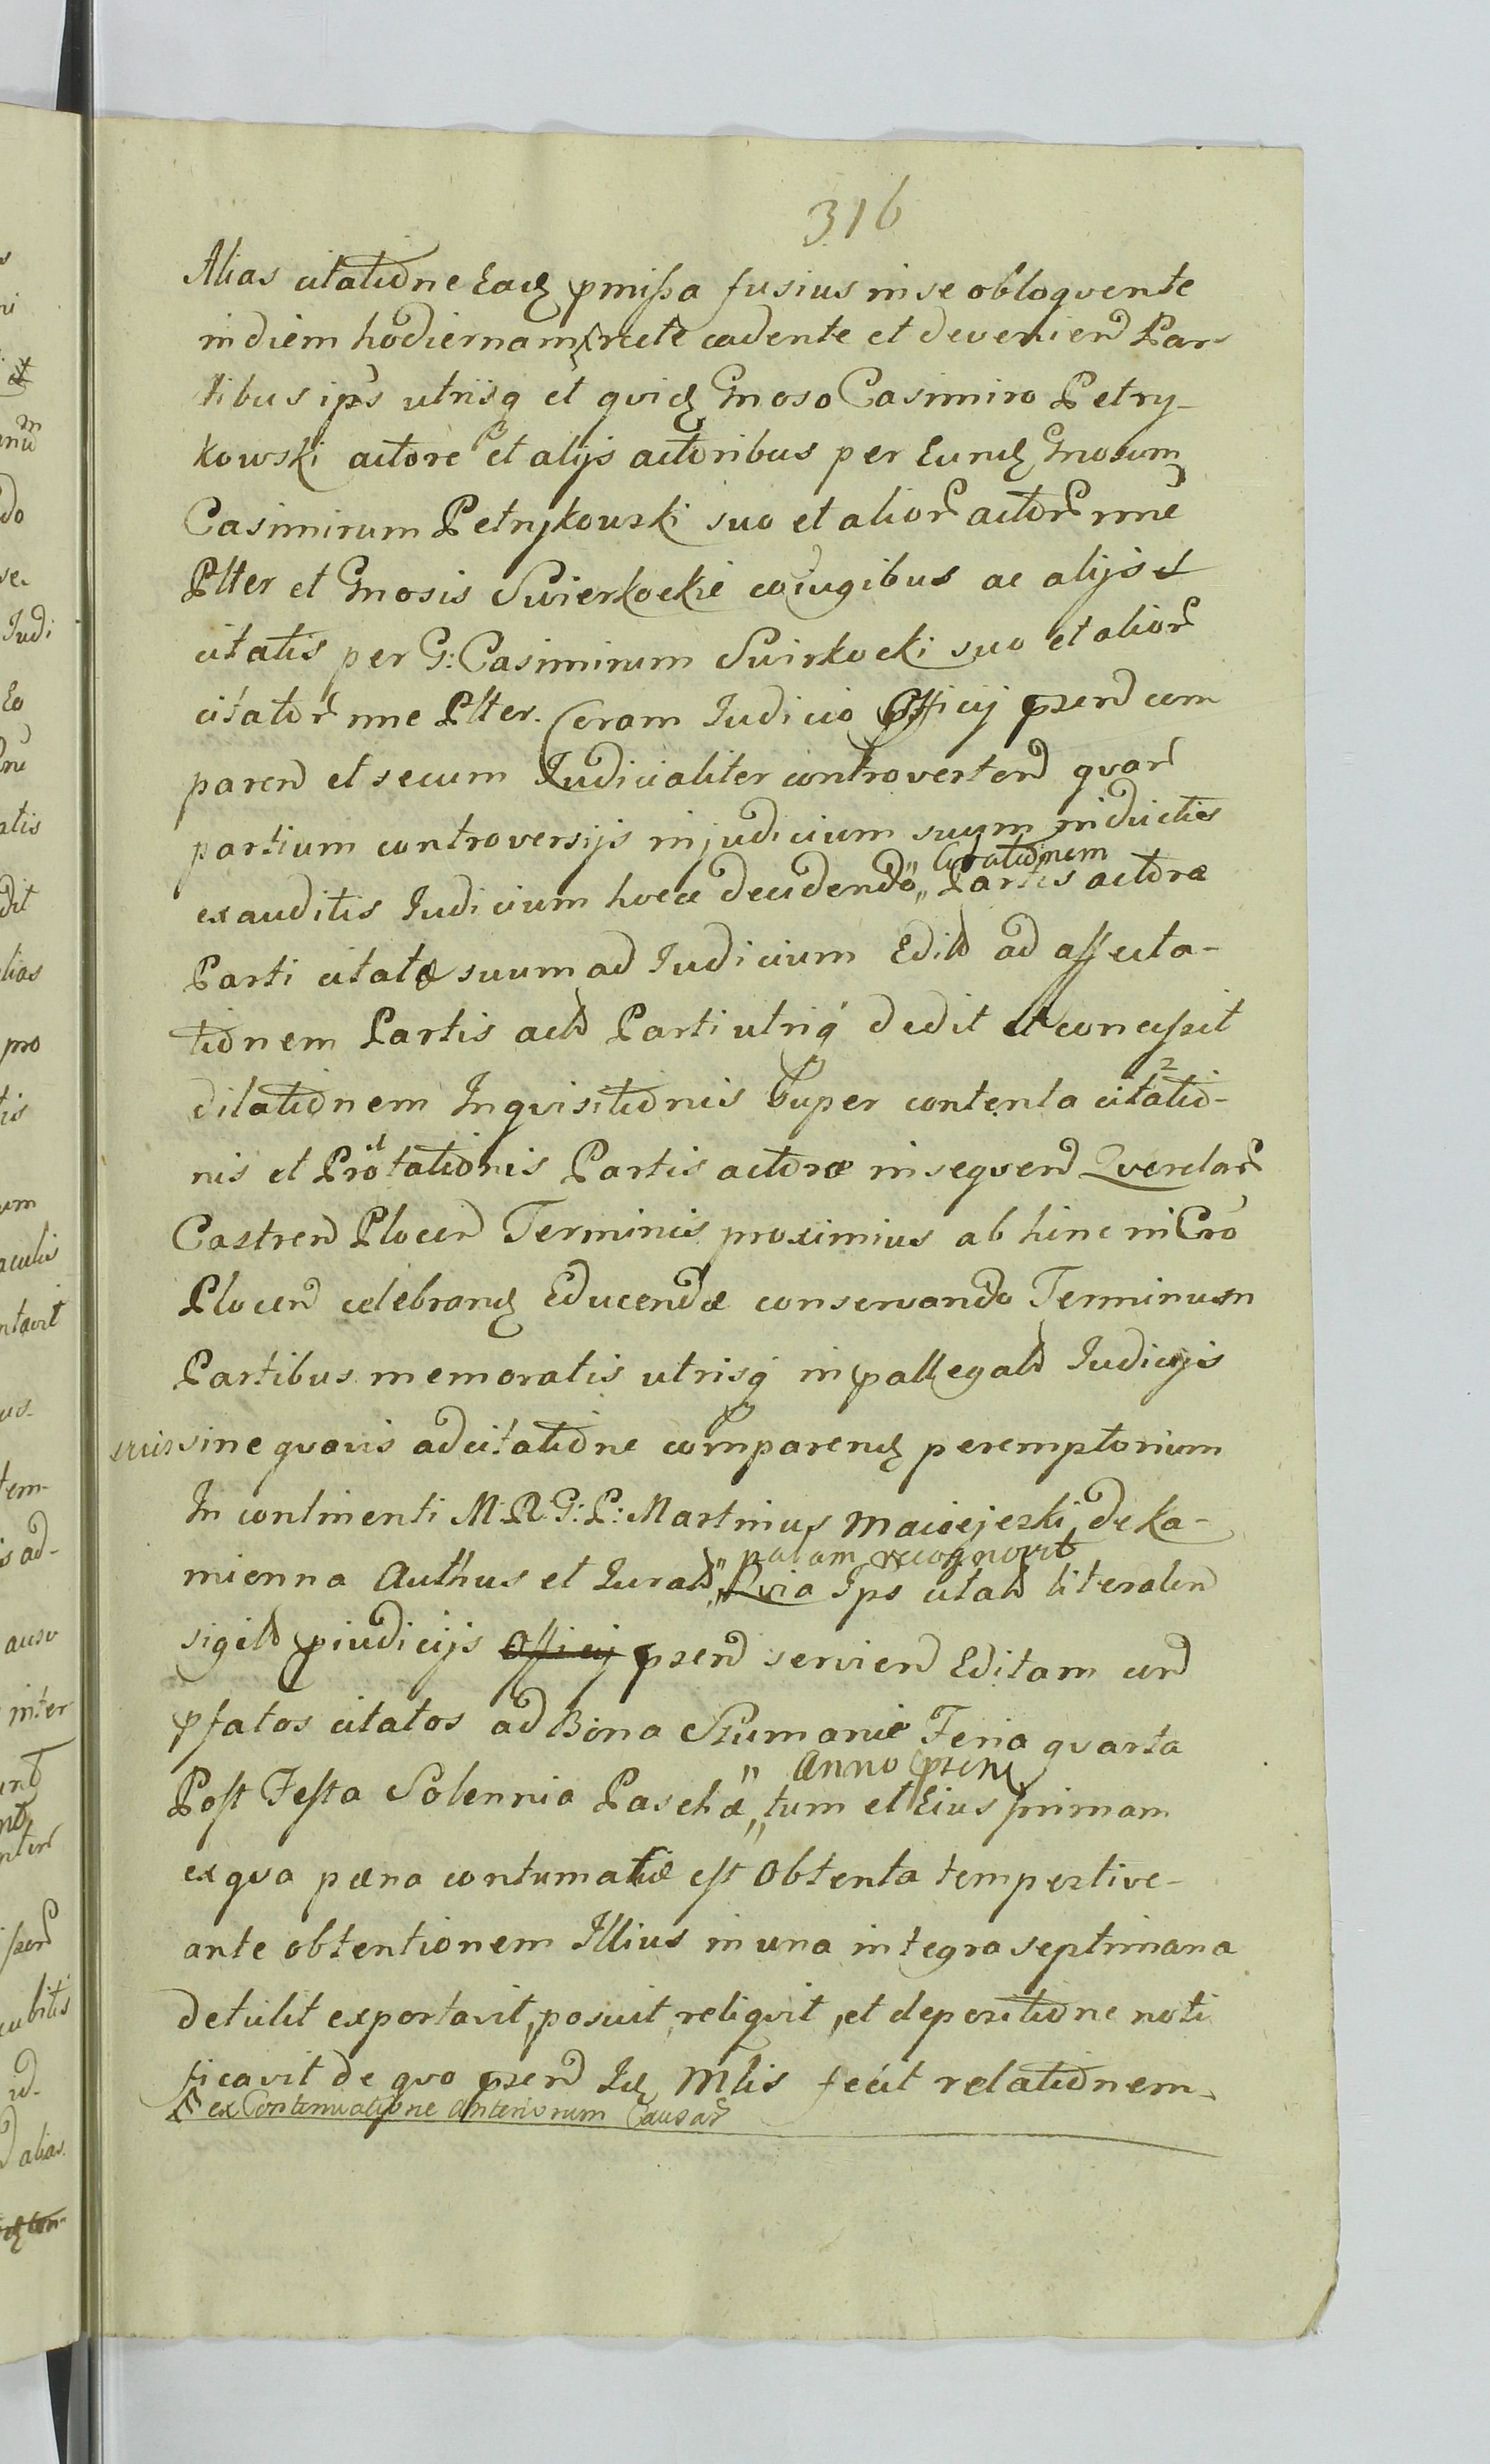 316
Alias citatione Eadẽ pmissa fusius in se obloqvente
in diem hodiernam recte cadente et devenień Par-
tibus ips utrisq et qvidẽ Gnoso Casimiro Petry-
kowski actore et alijs actoribus per Eundẽ Gnosum
Casimirum Petrykowski suo et alioř actoř nne
Pltter et Gnosis Swierkockie coiugibus ac alijs
citatis per G: Casimirum Swirkocki suo et alioř
citatoř nne Pltter. Coram Iudicio Officij pzend com
parend et secum Iudicialiter controvertend qvar
partium controversijs in judicium suum inductis
citationem
exauditis Iudicium hocce decidendo „ Partis actoræ
Parti citatæ suum ad Iudicium Edit ad affecta-
tionem Partis act Parti utriq dedit et concessit
dilationem Inqvisitionis Super contenta citatio-
nis et Protationis Partis actoræ in seqvend Qverelař
Castren Plocen Terminis proximius ab hinc in Cro
Plocen celebrandẽ Educendæ conservando Terminum
Partibus memoratis utrisq in pallegat Iudicijs
suis sine qvavis adcitatione comparendẽ peremptorium
In continenti M: R: G: P: Martinus Maciejeski de Ka-
palam recognovit
mienna Authus et Iurat „ Qvia Ips citat literalen
sigilt p iudicijs Officij pzend servien Editam cord
pfatos citatos ad Bona Szumanie Feria qvarta
Anno pzen
Post Festa Solennia Paschæ „ tum et Eius primam
ex qva pæna contumatiæ est obtenta tempestive
ante obtentionem Illius in una integra septimana
detulit exportavit, posuit, reliqvit, et depositione noti
ficavit de qvo pzend Iẽ Mlis fecit relationem
ex Contenuatione anteriorum Causař